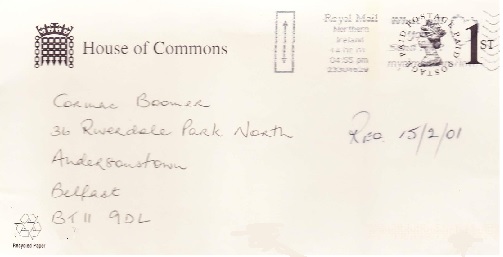 House of Commons
Royal Mail
Northern
Ireland
04:55 pm
POSTAGE PAID
1ST
Cormac Boomer
36 Riverdale Park North
Andersonstown
Belfast
BT11 9DL
Rec. 15/2/01
Recycled Paper